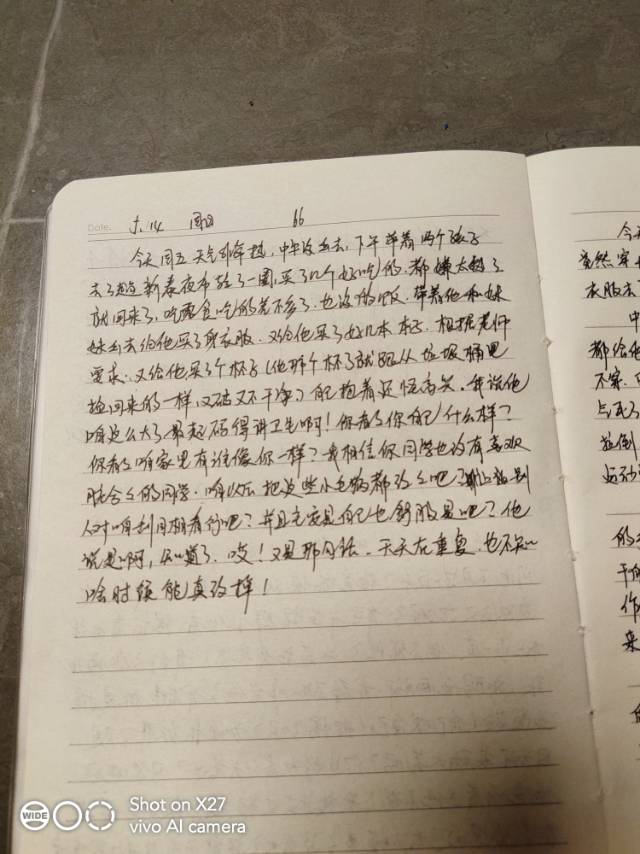 Date. 六.14 周日 66
今天周五天气非常热,中午没出去,下午带着两个孩子
去了趟新春夜市转了一圈,买了几个好吃的,都嫌太热了
就回来了,吃零食吃的差不多了,也没做饭,带着他和妹
妹出去给他买了身衣服,又给他买了好几本本子,根据老师
要求,又给他买了个杯子(他那个杯子就跟从垃圾桶里
捡回来的一样,又破又不干净)自己抱着还怪高兴,我说他
咱这么大了最起码得讲卫生啊!你看看你自己什么样?
你看看咱家里有谁像你一样?我相信你同学也没有喜欢
的同学,咱以后把这些小毛病都改了吧?别
人对咱刮目相看行吧?并且主要是自己也舒服是吧?他
说是啊,知道了,哎!又是那句话,天天在重复,也不知
啥时候能真改掉!
今天
竟然穿
衣服去
中
都给他
不穿
点
拉倒
运动
的
干
作
来
WIDE
Shot on X27
vivo AI camera